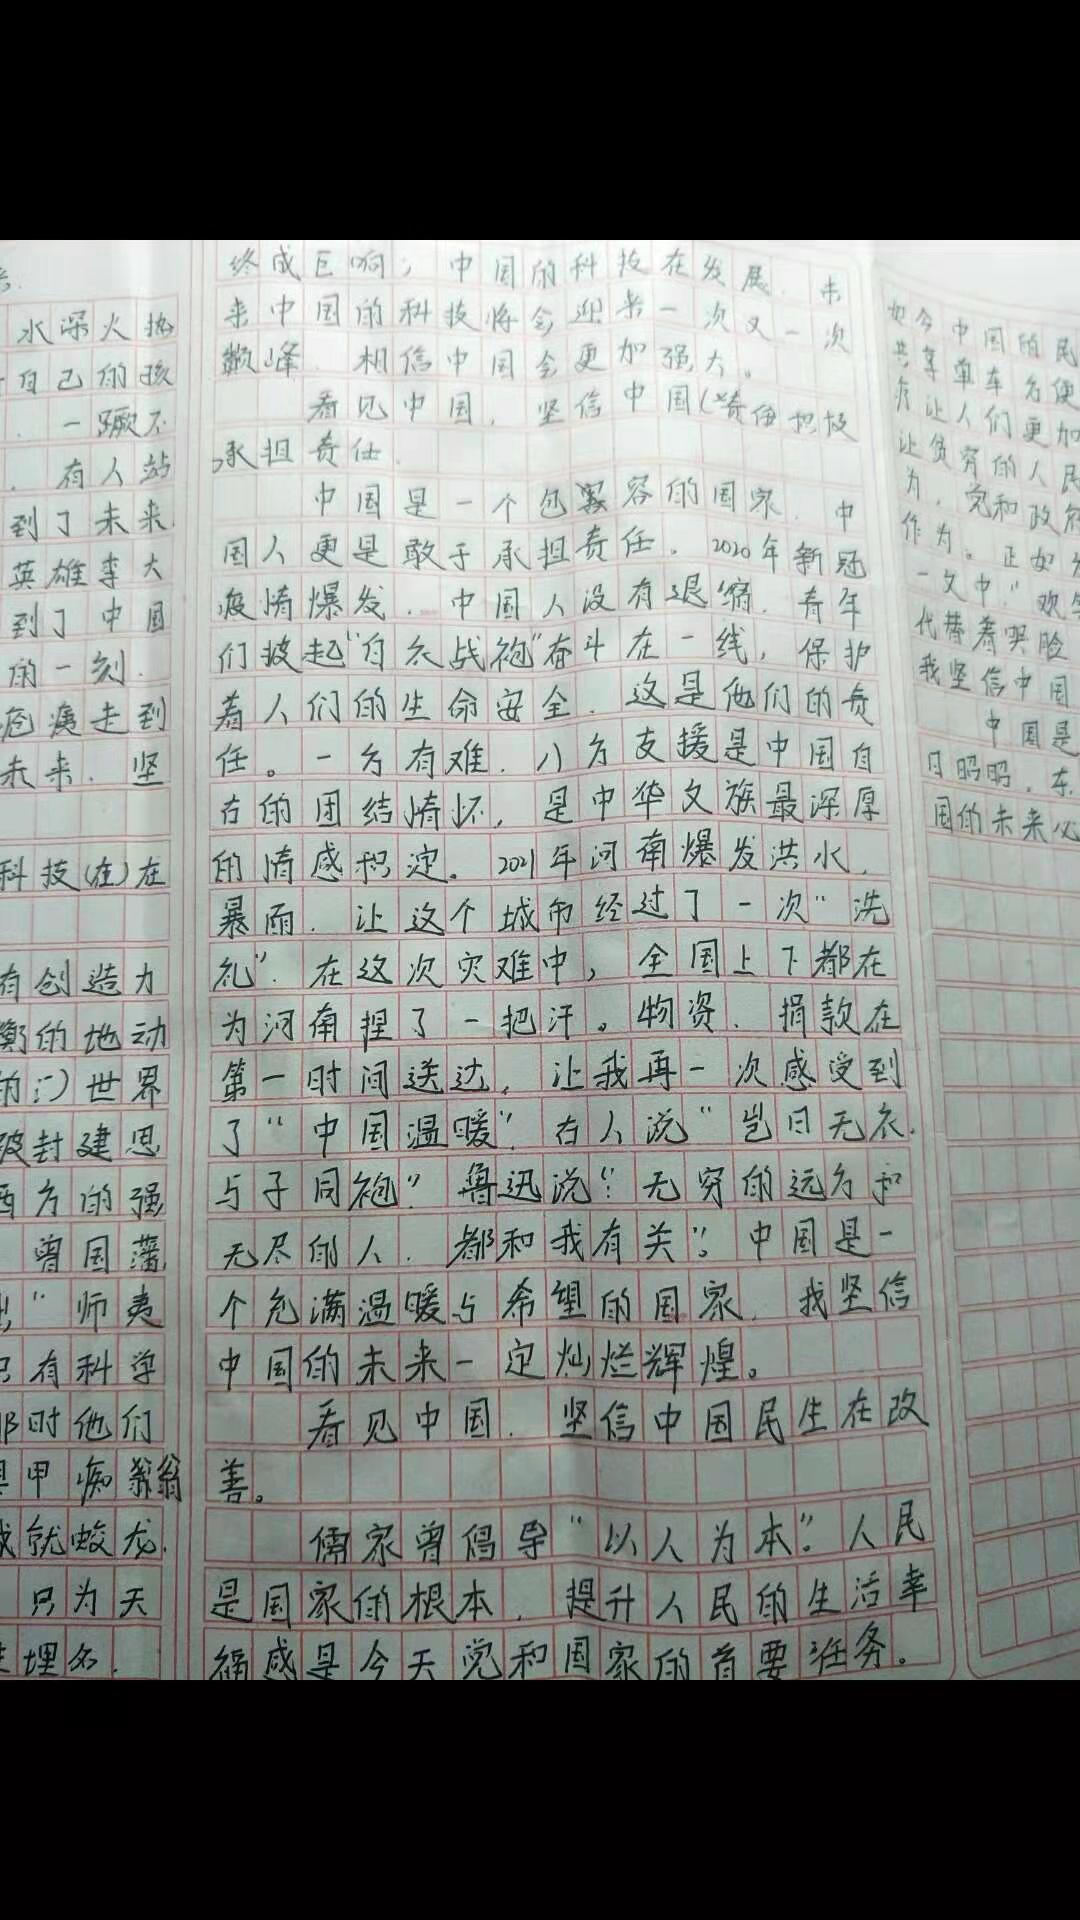 水深火热
自己的孩
一蹶不
有人站
到了未来
英雄李大
到了中国
的一刻.
疮痍走到
未来.坚
科技(在)在
有创造力
衡的地动
世界
被封建思
西方的强
曾国藩
"师夷
有科学
那时他们
甲痴翁
成就蛟龙.
只为天
埋名.
终成巨响;中国的科技在发展.未
来中国的科技将会迎来一次又一次
巅峰.相信中国会更加强大。
看见中国.坚信中国(责任积极
承担责任.
中国是一个包容的国家.中
国人更是敢于承担责任。2020年新冠
疫情爆发.中国人没有退缩.青年
们披起"白衣战袍"奋斗在一线,保护
着人们的生命安全.这是他们的责
任。一方有难.八方支援是中国自
古的团结情怀,是中华文族最深厚
的情感积淀。2021年河南爆发洪水.
暴雨.让这个城市经过了一次"洗
礼".在这次灾难中,全国上下都在
为河南捏了一把汗。物资.捐款在
第一时间送达,让我再一次感受到
了"中国温暖".古人说"岂曰无衣.
与子同袍".鲁迅说:"无穷的远方和
无尽的人.都和我有关"。中国是一
个充满温暖与希望的国家.我坚信
中国的未来一定灿烂辉煌。
看见中国.坚信中国民生在改
善。
儒家曾倡导"以人为本".人民
是国家的根本.提升人民的生活幸
福感是今天党和国家的首要任务。
如今中国的民
共享单车方便
让人们更加
让贫穷的人民
为.党和政府
作为。正如方
一文中:"欢
代替着哭脸
我坚信中国
中国是
日昭昭.东
国的未来必